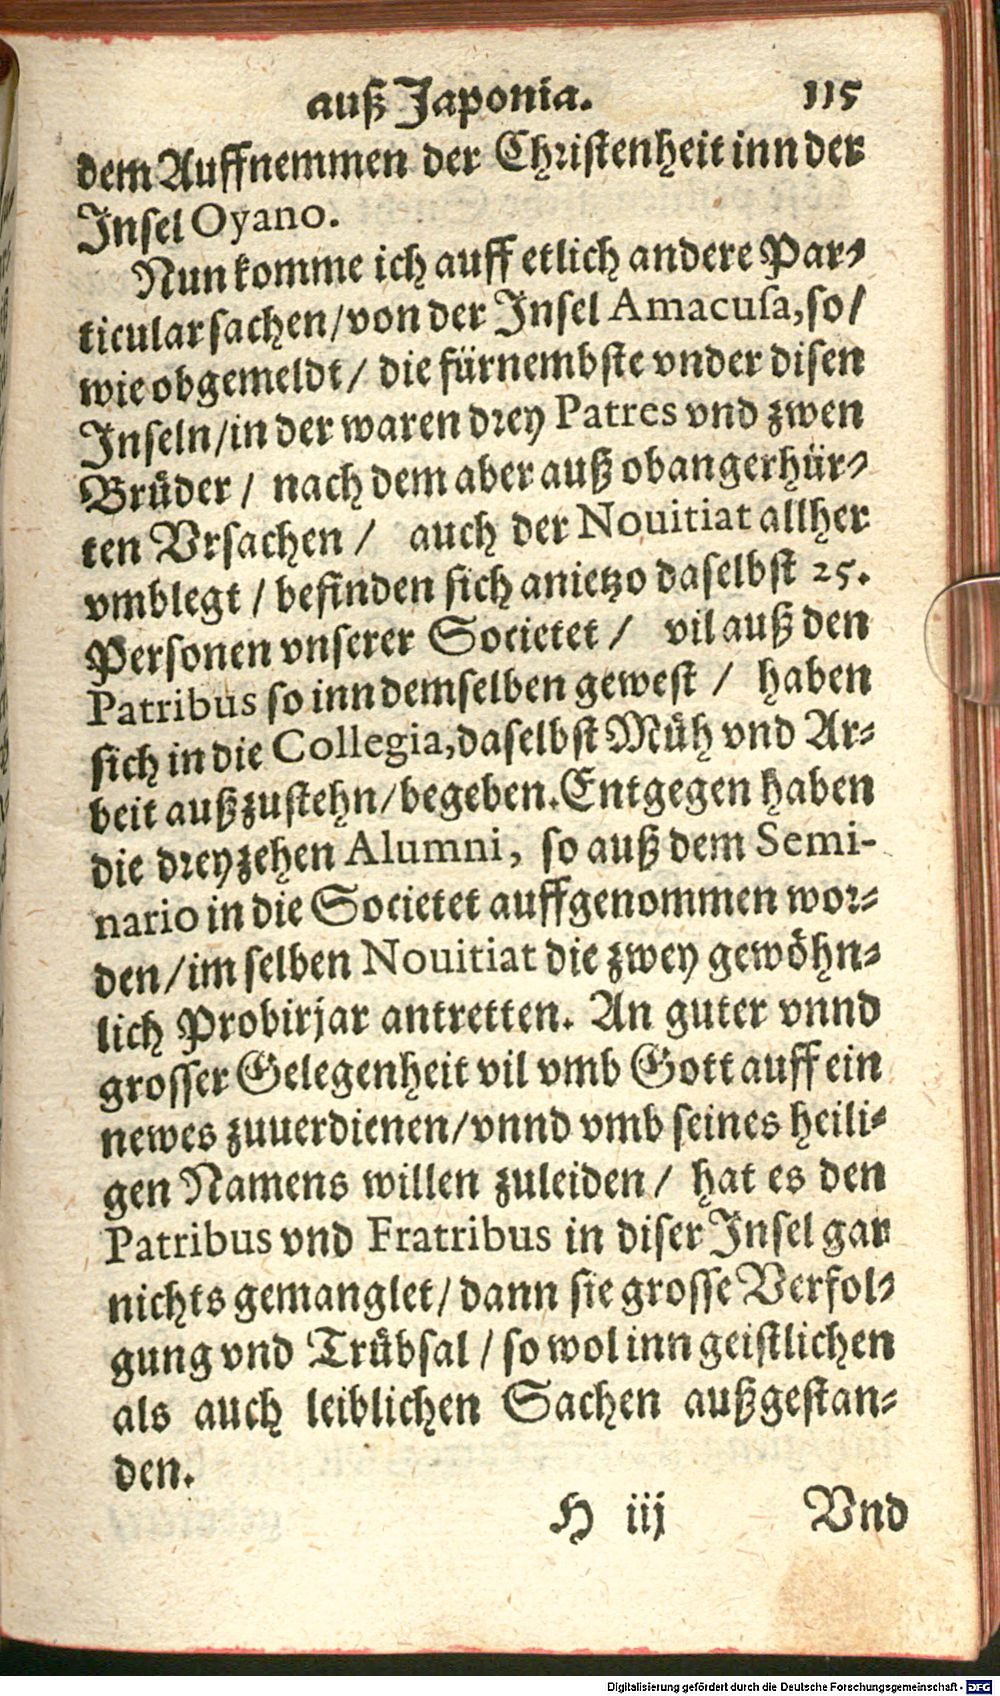 auß Japonia. 115
dem Auffnemmen der Christenheit inn der
Insel Oyano.
Nun komme ich auff etlich andere Par-
ticular sachen/von der Insel Amacusa, so/
wie obgemeldt/ die fürnembste vnder disen
Inseln/in der waren drey Patres vnd zwen
Brüder/ nach dem aber auß obangerhür-
ten Vrsachen/ auch der Nouitiat allher
vmblegt/befinden sich anietzo daselbst 25.
Personen vnserer Societet/ vil auß den
Patribus so inn demselben gewest/ haben
sich in die Collegia, daselbst Müh vnd Ar-
beit außzustehn/begeben. Entgegen haben
die dreyzehen Alumni, so auß dem Semi-
nario in die Societet auffgenommen wor-
den/im selben Nouitiat die zwey gewöhn-
lich Probirjar antretten. An guter vnnd
grosser Gelegenheit vil vmb Gott auff ein
newes zuuerdienen/vnnd vmb seines heili-
gen Namens willen zuleiden/ hat es den
Patribus vnd Fratribus in diser Insel gar
nichts gemanglet/dann sie grosse Verfol-
gung vnd Trübsal/so wol inn geistlichen
als auch leiblichen Sachen außgestan-
den.
H iij Vnd
Digitalisierung gefördert durch die Deutsche Forschungsgemeinschaft - DFG